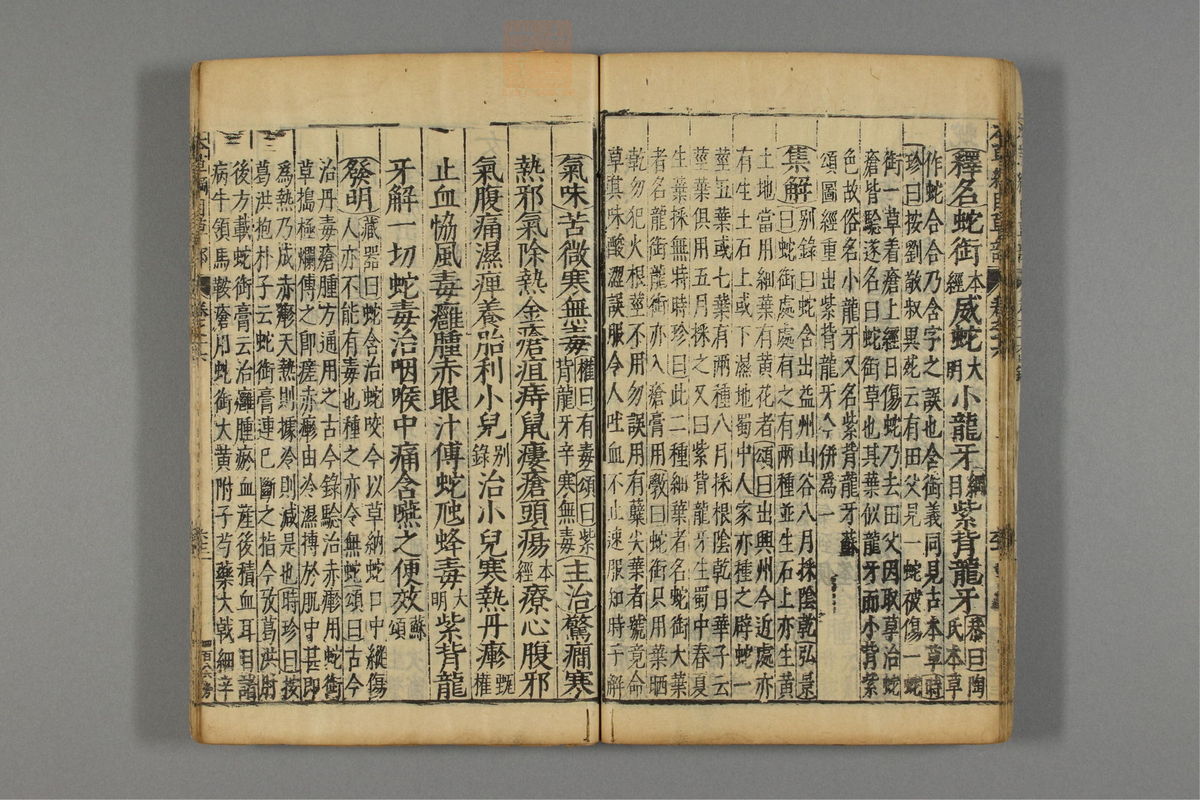 釋名蛇銜本經威蛇大明小龍牙綱目紫背龍牙恭曰陶氏本草
作蛇合合乃含字之誤也含銜義同見古本草時
珍曰按劉敬叔異苑云有田父見一蛇被傷一蛇
銜一草着瘡上經日傷蛇乃去田父因取草治蛇
瘡皆驗遂名曰蛇銜草也其葉似龍牙而小背紫
色故俗名小龍牙又名紫背龍牙蘇
頌圖經重出紫背龍牙今併爲一
集解别錄曰蛇含出益州山谷八月採陰乾弘景
曰蛇銜處處有之有兩種並生石上亦生黃
土地當用細葉有黃花者頌曰出興州今近處亦
有生土石上或下濕地蜀中人家亦種之辟蛇一
莖五葉或七葉有兩種八月採根陰乾日華子云
莖葉俱用五月採之又曰紫背龍牙生蜀中春夏
生葉採無時時珍曰此二種細葉者名蛇銜大葉
者名龍銜龍銜亦入瘡膏用斅曰蛇銜只用葉晒
乾勿犯火根莖不用勿誤用有蘗尖葉者號竟命
草其味酸澀誤服令人吐血不止速服知時子解
氣味苦微寒無毒權曰有毒頌曰紫背龍牙辛寒無毒主治驚癇寒
熱邪氣除熱金瘡疽痔鼠瘻瘡頭瘍本經療心腹邪
氣腹痛濕痺養胎利小兒别錄治小兒寒熱丹瘮甄權
止血恊風毒癰腫赤眼汁傅蛇虺蜂毒大明紫背龍
牙解一切蛇毒治咽喉中痛含嚥之便效蘇頌
發明藏器曰蛇含治蛇咬今以草納蛇口中縱傷
人亦不能有毒也種之亦令無蛇頌曰古今
治丹毒瘡腫方通用之古今錄驗治赤瘮用蛇銜
草搗極爛傅之即瘥赤瘮由冷濕搏於肌中甚即
爲熱乃成赤瘮天熱則據冷則減是也時珍曰按
葛洪抱朴子云蛇銜膏連已斷之指今攷葛洪肘
後方載蛇銜膏云治癰腫瘀血産後積血耳目諸
病牛領馬鞍瘡用蛇銜大黃附子芍藥大戟細辛